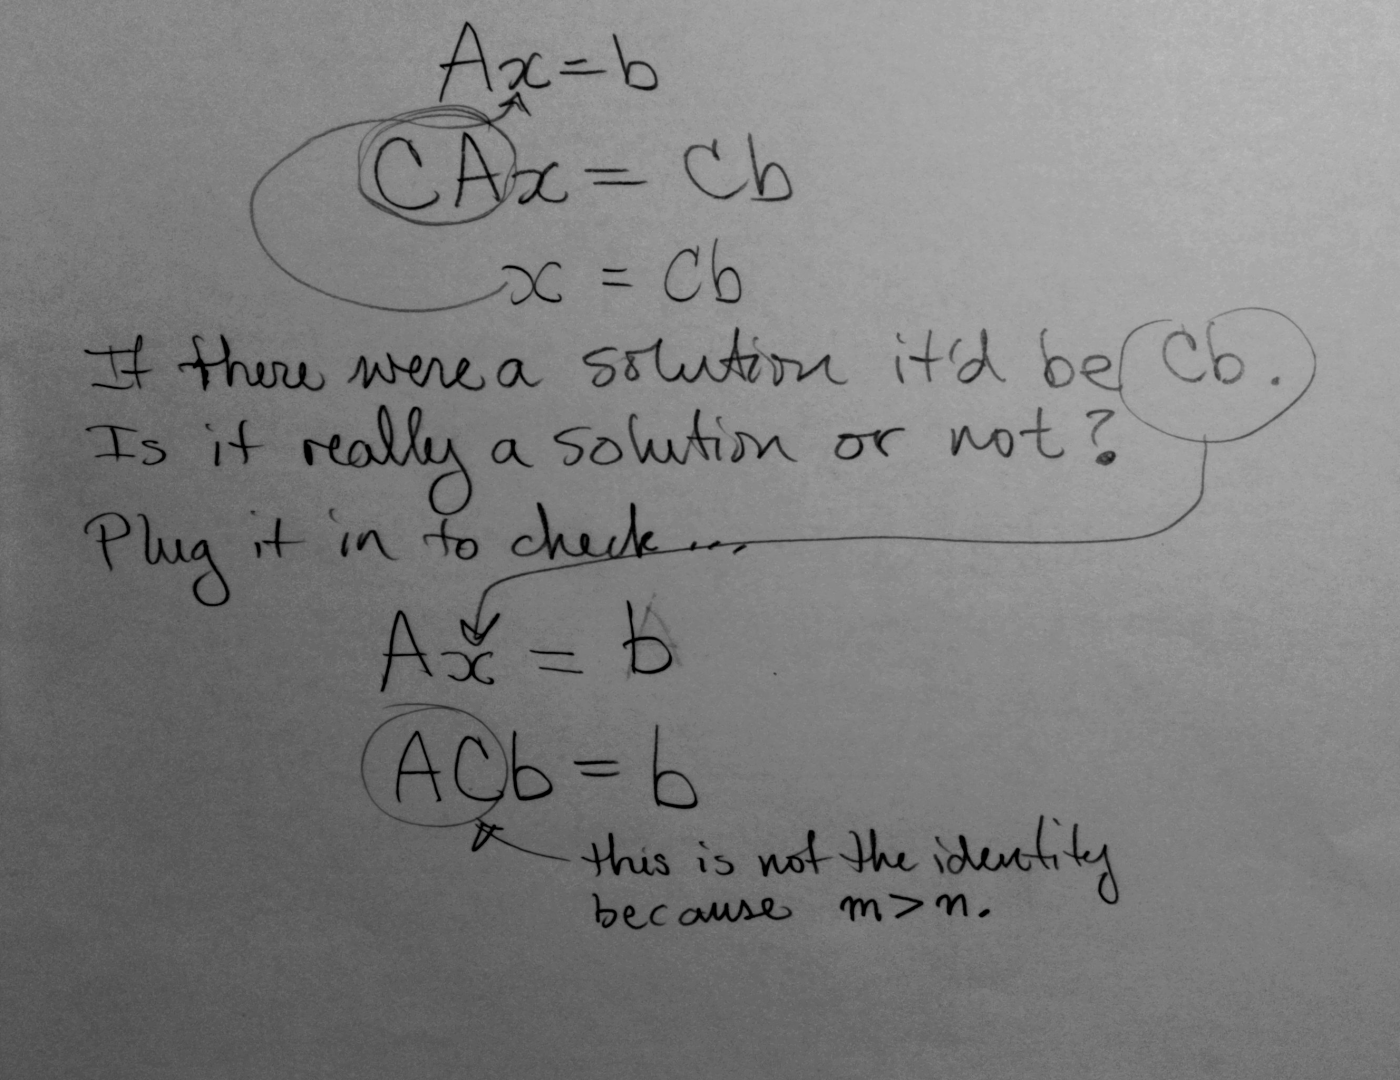 Ax=b
CAx = Cb
x = Cb
If there were a solution it'd be Cb.
Is it really a solution or not?
Plug it in to check...
Ax = b
ACb = b
this is not the identity
because m>n.